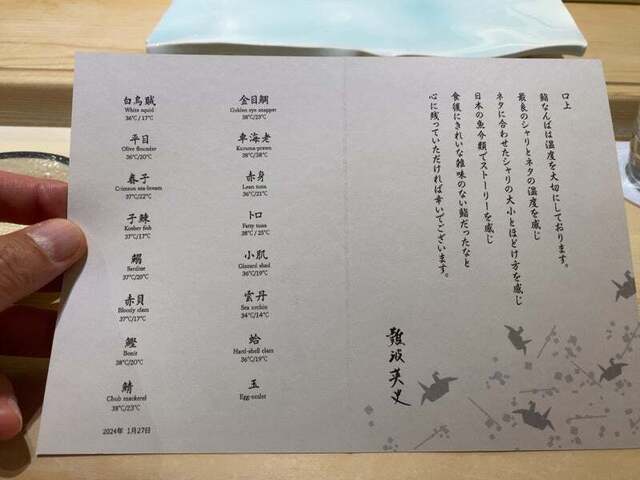 白烏賊
White squid
36℃ / 17℃
平目
Olive flounder
36℃/20℃
春子
Crimson sea-bream
37℃/22℃
子鰊
37℃/17℃
鰯
Sardine
37℃/20℃
赤貝
Bloody clam
37℃/17℃
鰹
Bonit
38℃/20℃
鯖
Chub mackerel
38℃/23℃
2024年 1月27日
金目鯛
Golden eye snapper
38℃/23℃
車海老
Kuruma-prawn
38℃/38℃
赤身
Lean tuna
36℃/21℃
トロ
Fatty tuna
38℃ / 25℃
小肌
Gizzard shad
36℃/19℃
雲丹
Sea urchin
34℃/14℃
蛤
Hard-shell clam
36℃/19℃
玉
Egg-omlet
口上
鮨なんばは温度を大切にしております。
最良のシャリとネタの温度を感じ
ネタに合わせたシャリの大小とほどけ方を感じ
日本の魚介類でストーリーを感じ
食後にきれいな雑味のない鮨だったなと
心に残っていただければ幸いでございます。
難波英史